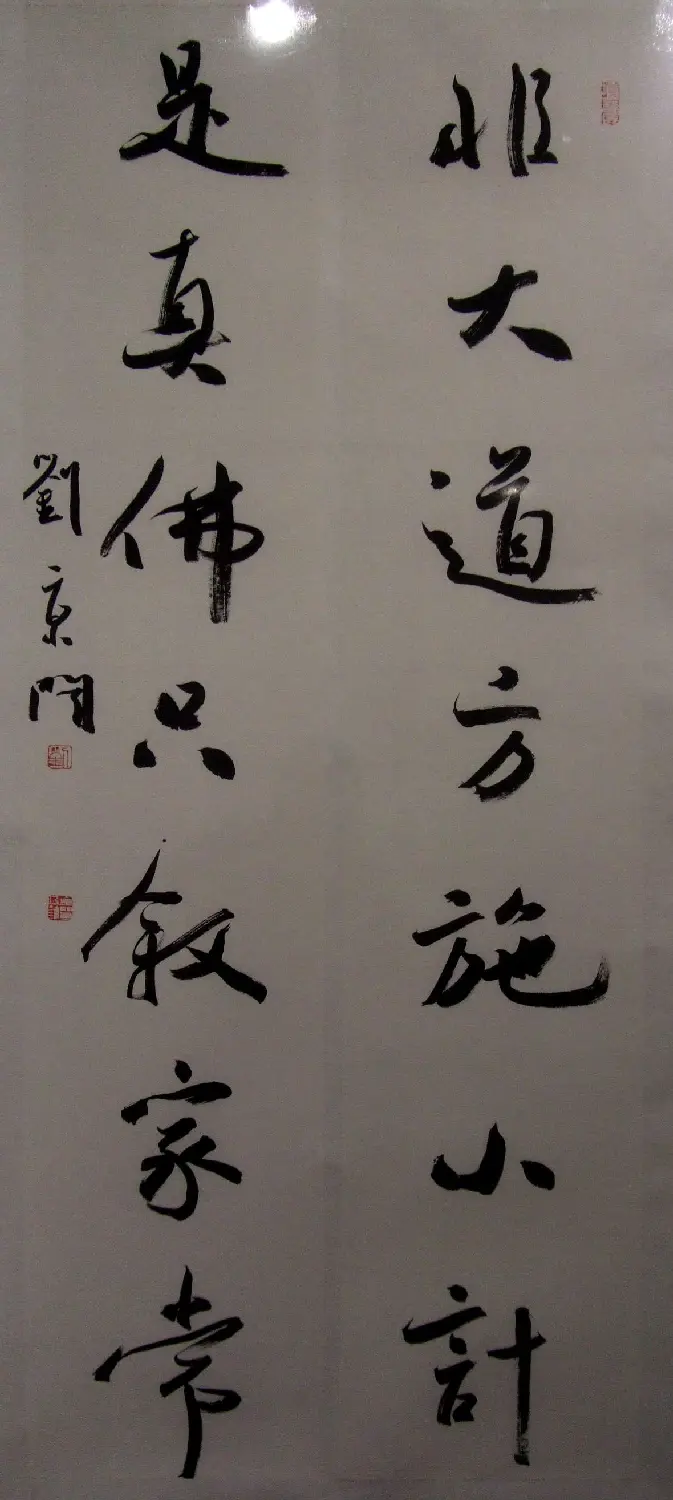 非大道方施小計
是真佛只敘家常
劉京聞